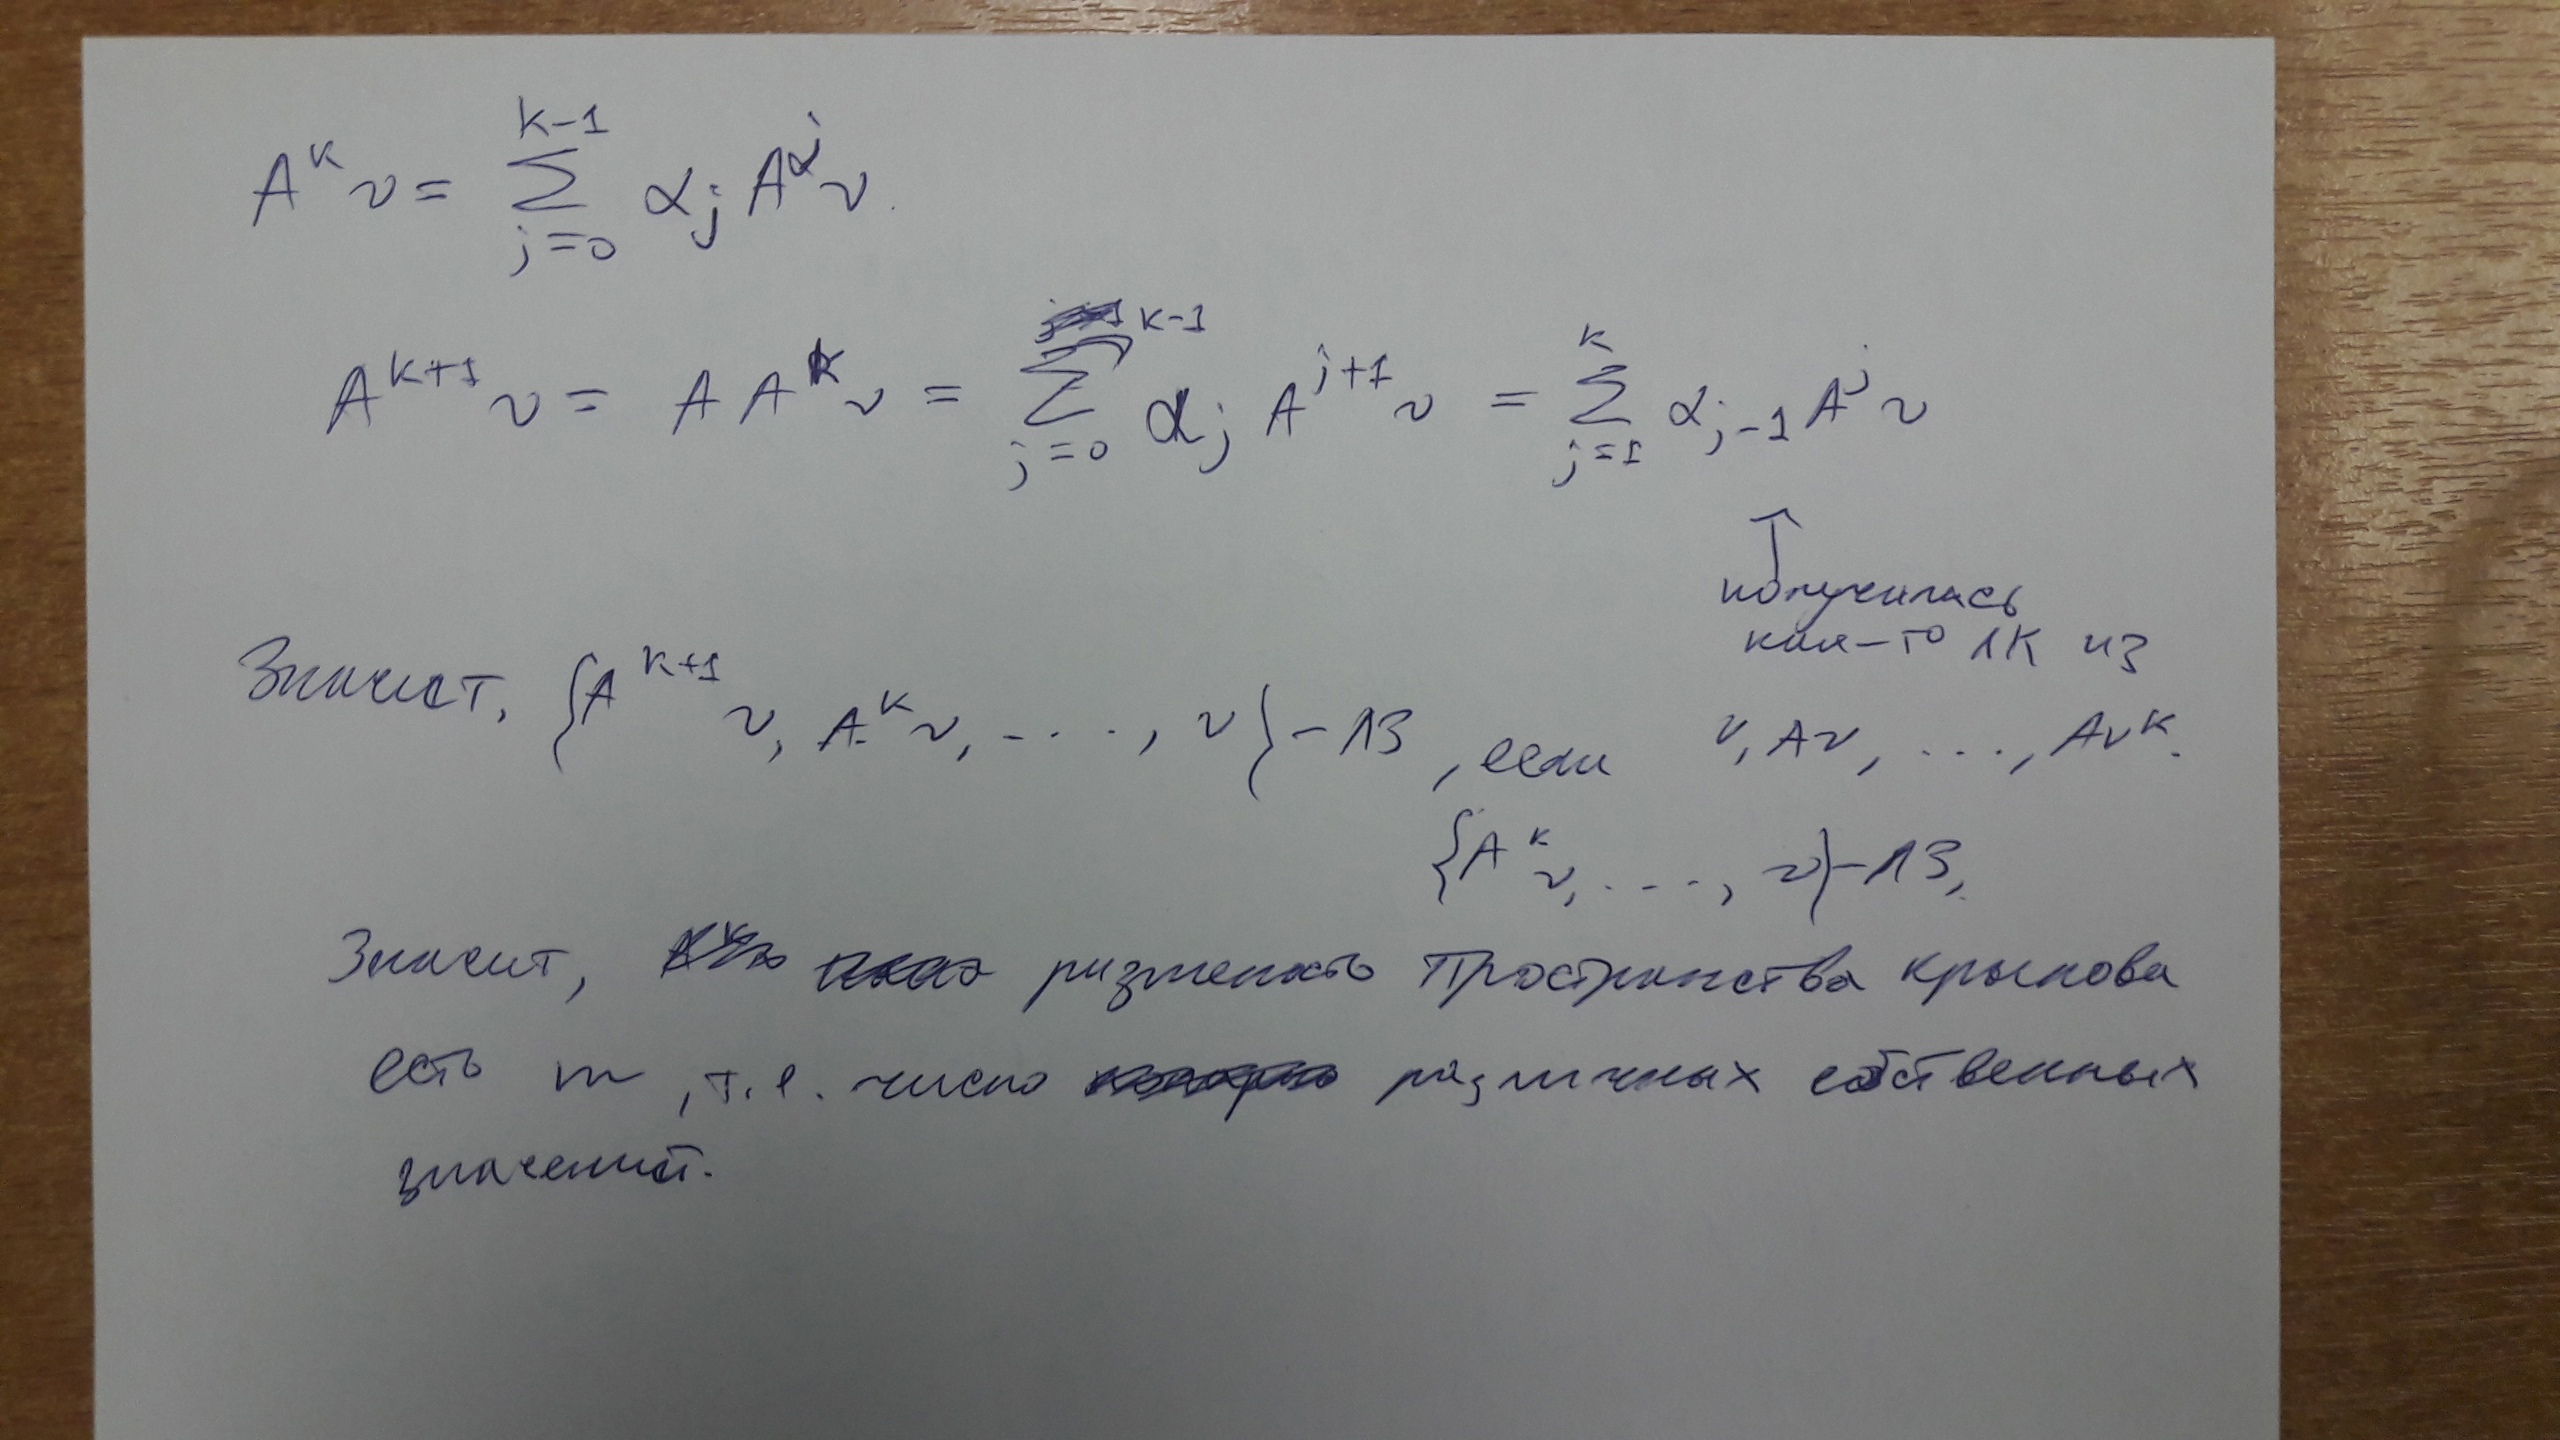 A^k v = \sum_{j=0}^{k-1} α_j A^j v
A^{k+1} v = A A^k v = \sum_{j=0}^{k-1} α_j A^{j+1} v = \sum_{j=1}^{k} α_{j-1} A^j v
↑
получилась
кая-то ЛК из
v, Av, ..., Av^k.
Значит, {A^{k+1} v, A^k v, ..., v} - ЛЗ, если
{A^k v, ..., v} - ЛЗ.
Значит, размерность Пространства крылова
есть m, т.е. число различных собственных
значений.